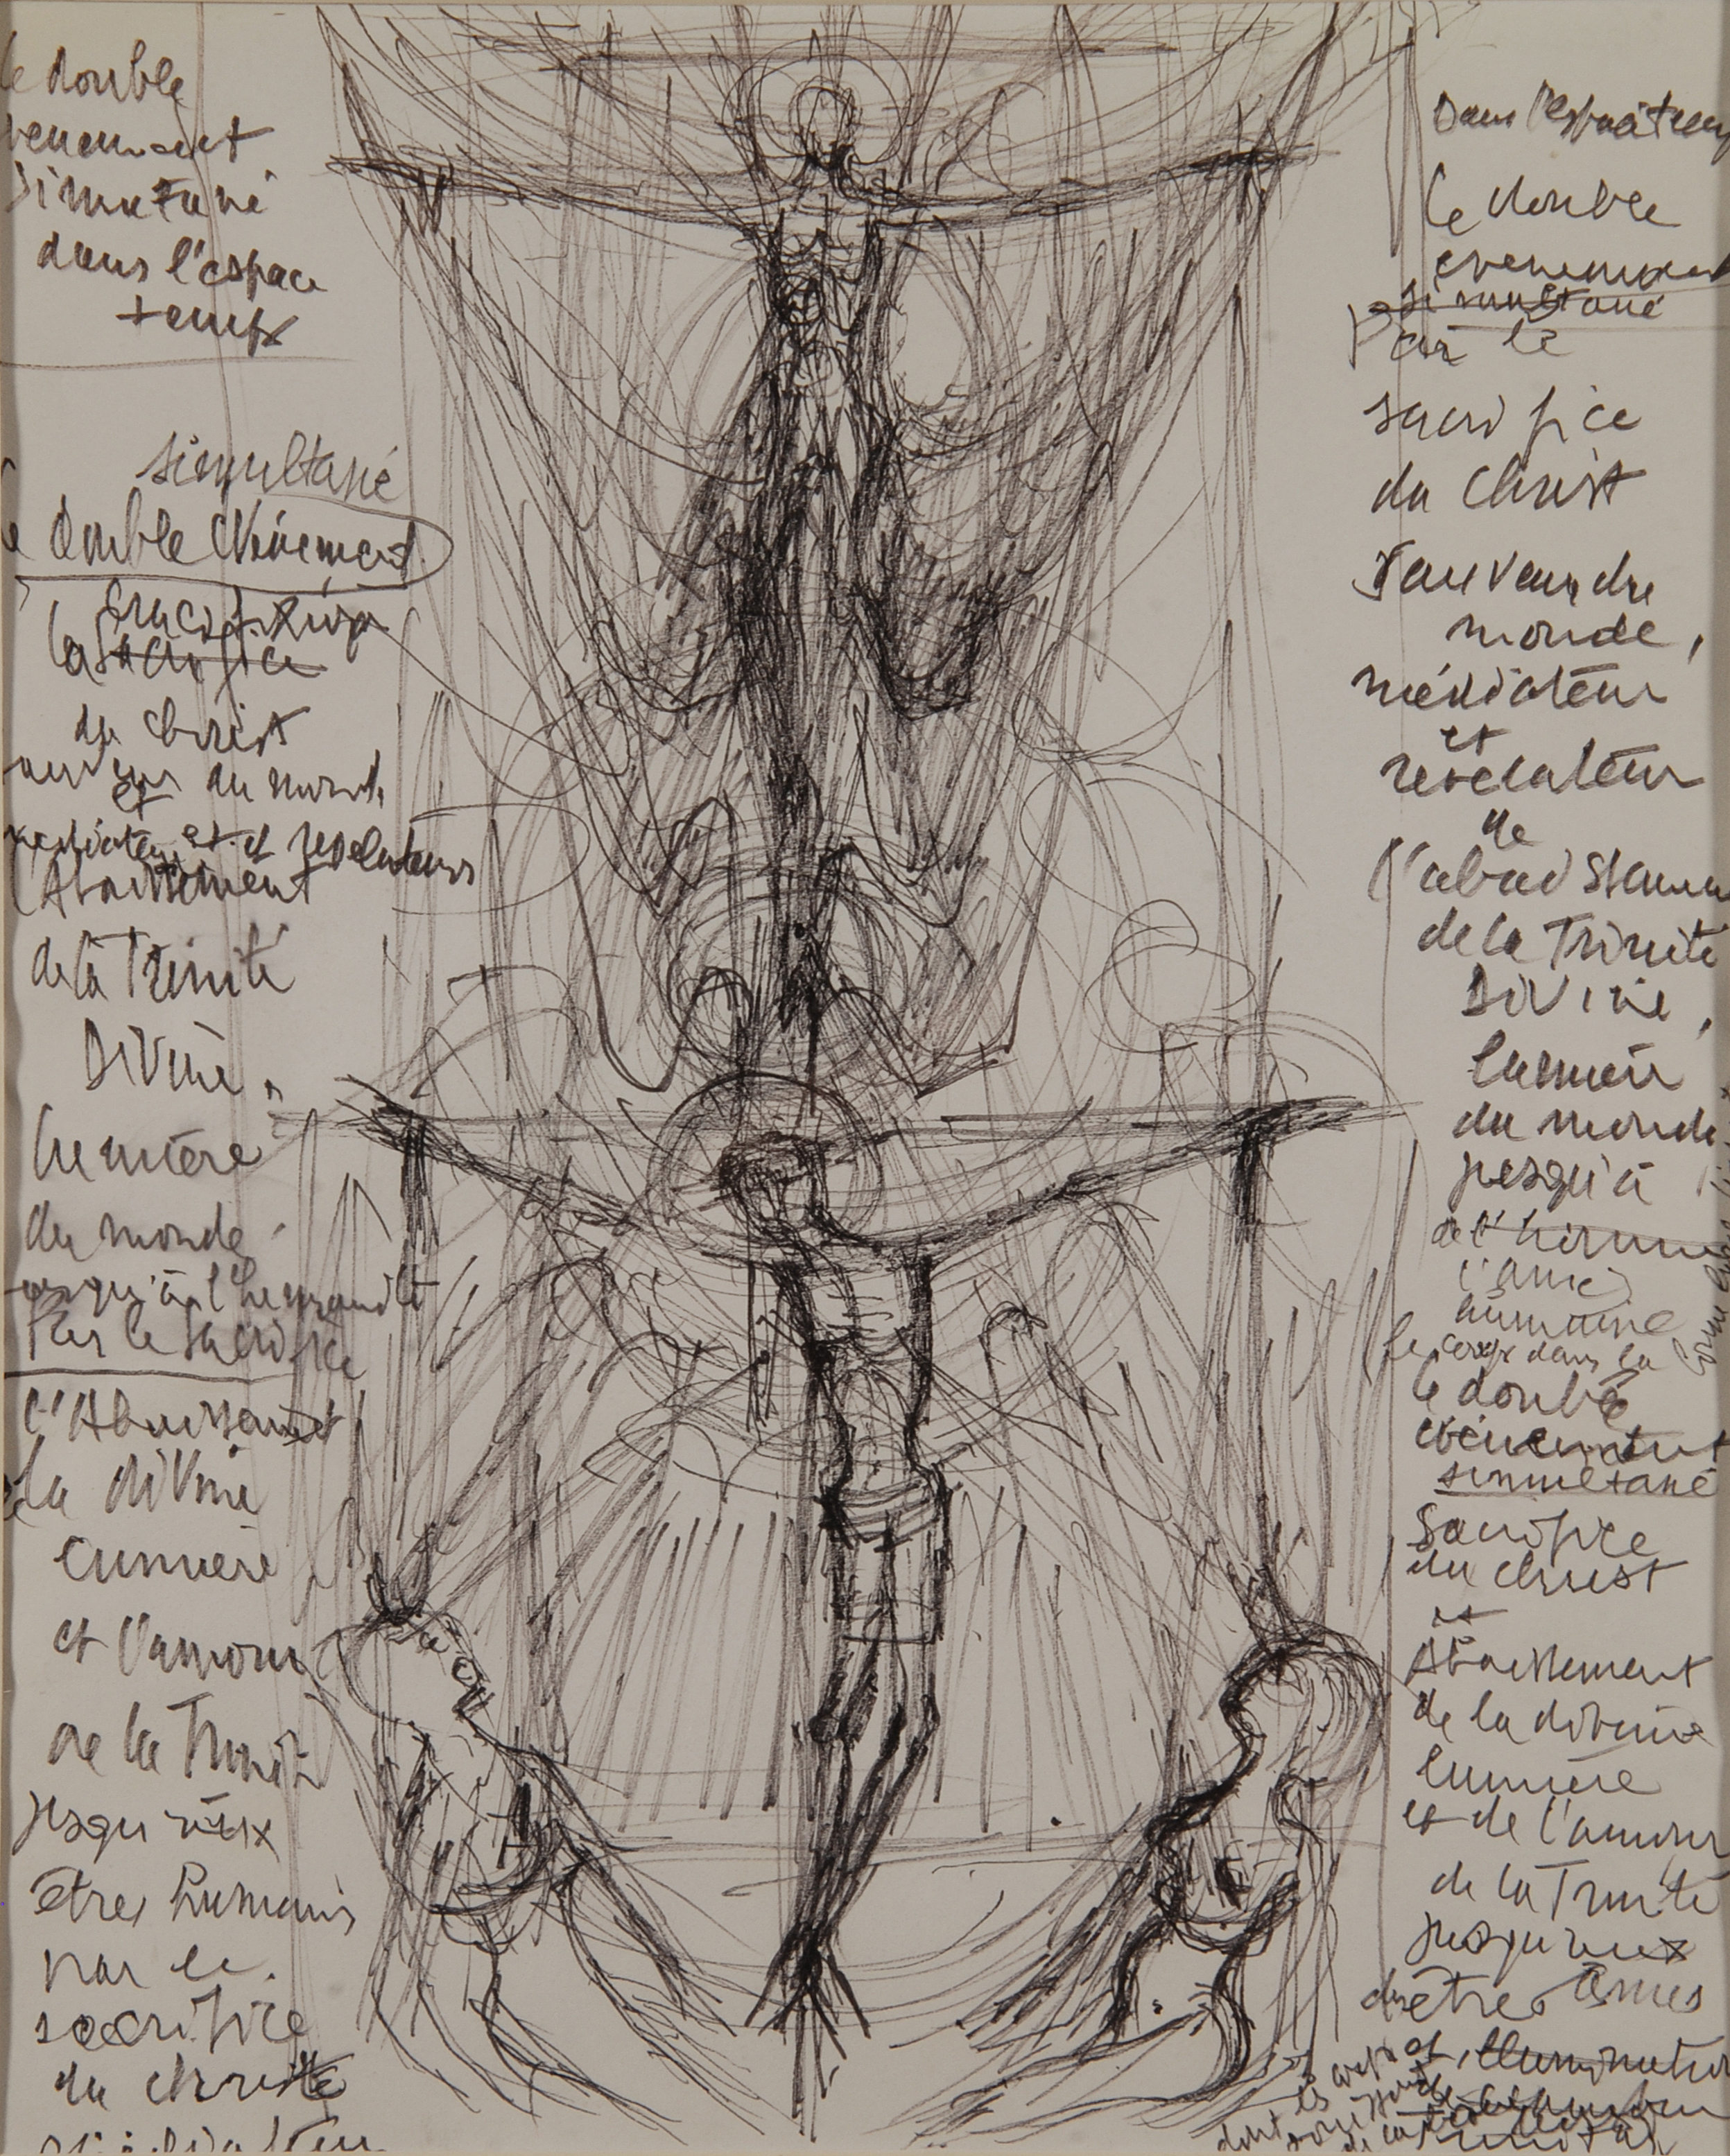 le double
simutané
dans l'espace
temps
simultané
double évènement
crucifixion
la sacrifice
du Christ
du monde
et
et révélateurs
l'Abaissement
de la Trinité
Divine
lumière
du monde
jusqu'à l'
Par le sacrifice
l'Abaissement
la divine
lumière
et l'amour
de la Trinité
jusqu'aux
êtres humains
par le
sacrifice
du christ
Dans l'espace temps
le double
evenement
simultané
par le
sacrifice
du Christ
sauveur du
monde,
médiateur
et
révélateur
de
l'abaissement
de la Trinité
Divine,
lumière
du monde
jusqu'à
l'âme
humaine
le corps dans la
le double
évènement
simultané
Sacrifice
du Christ
et
Abaissement
de la divine
lumière
et de l'amour
de la Trinité
jusqu'aux
êtres âmes
dont